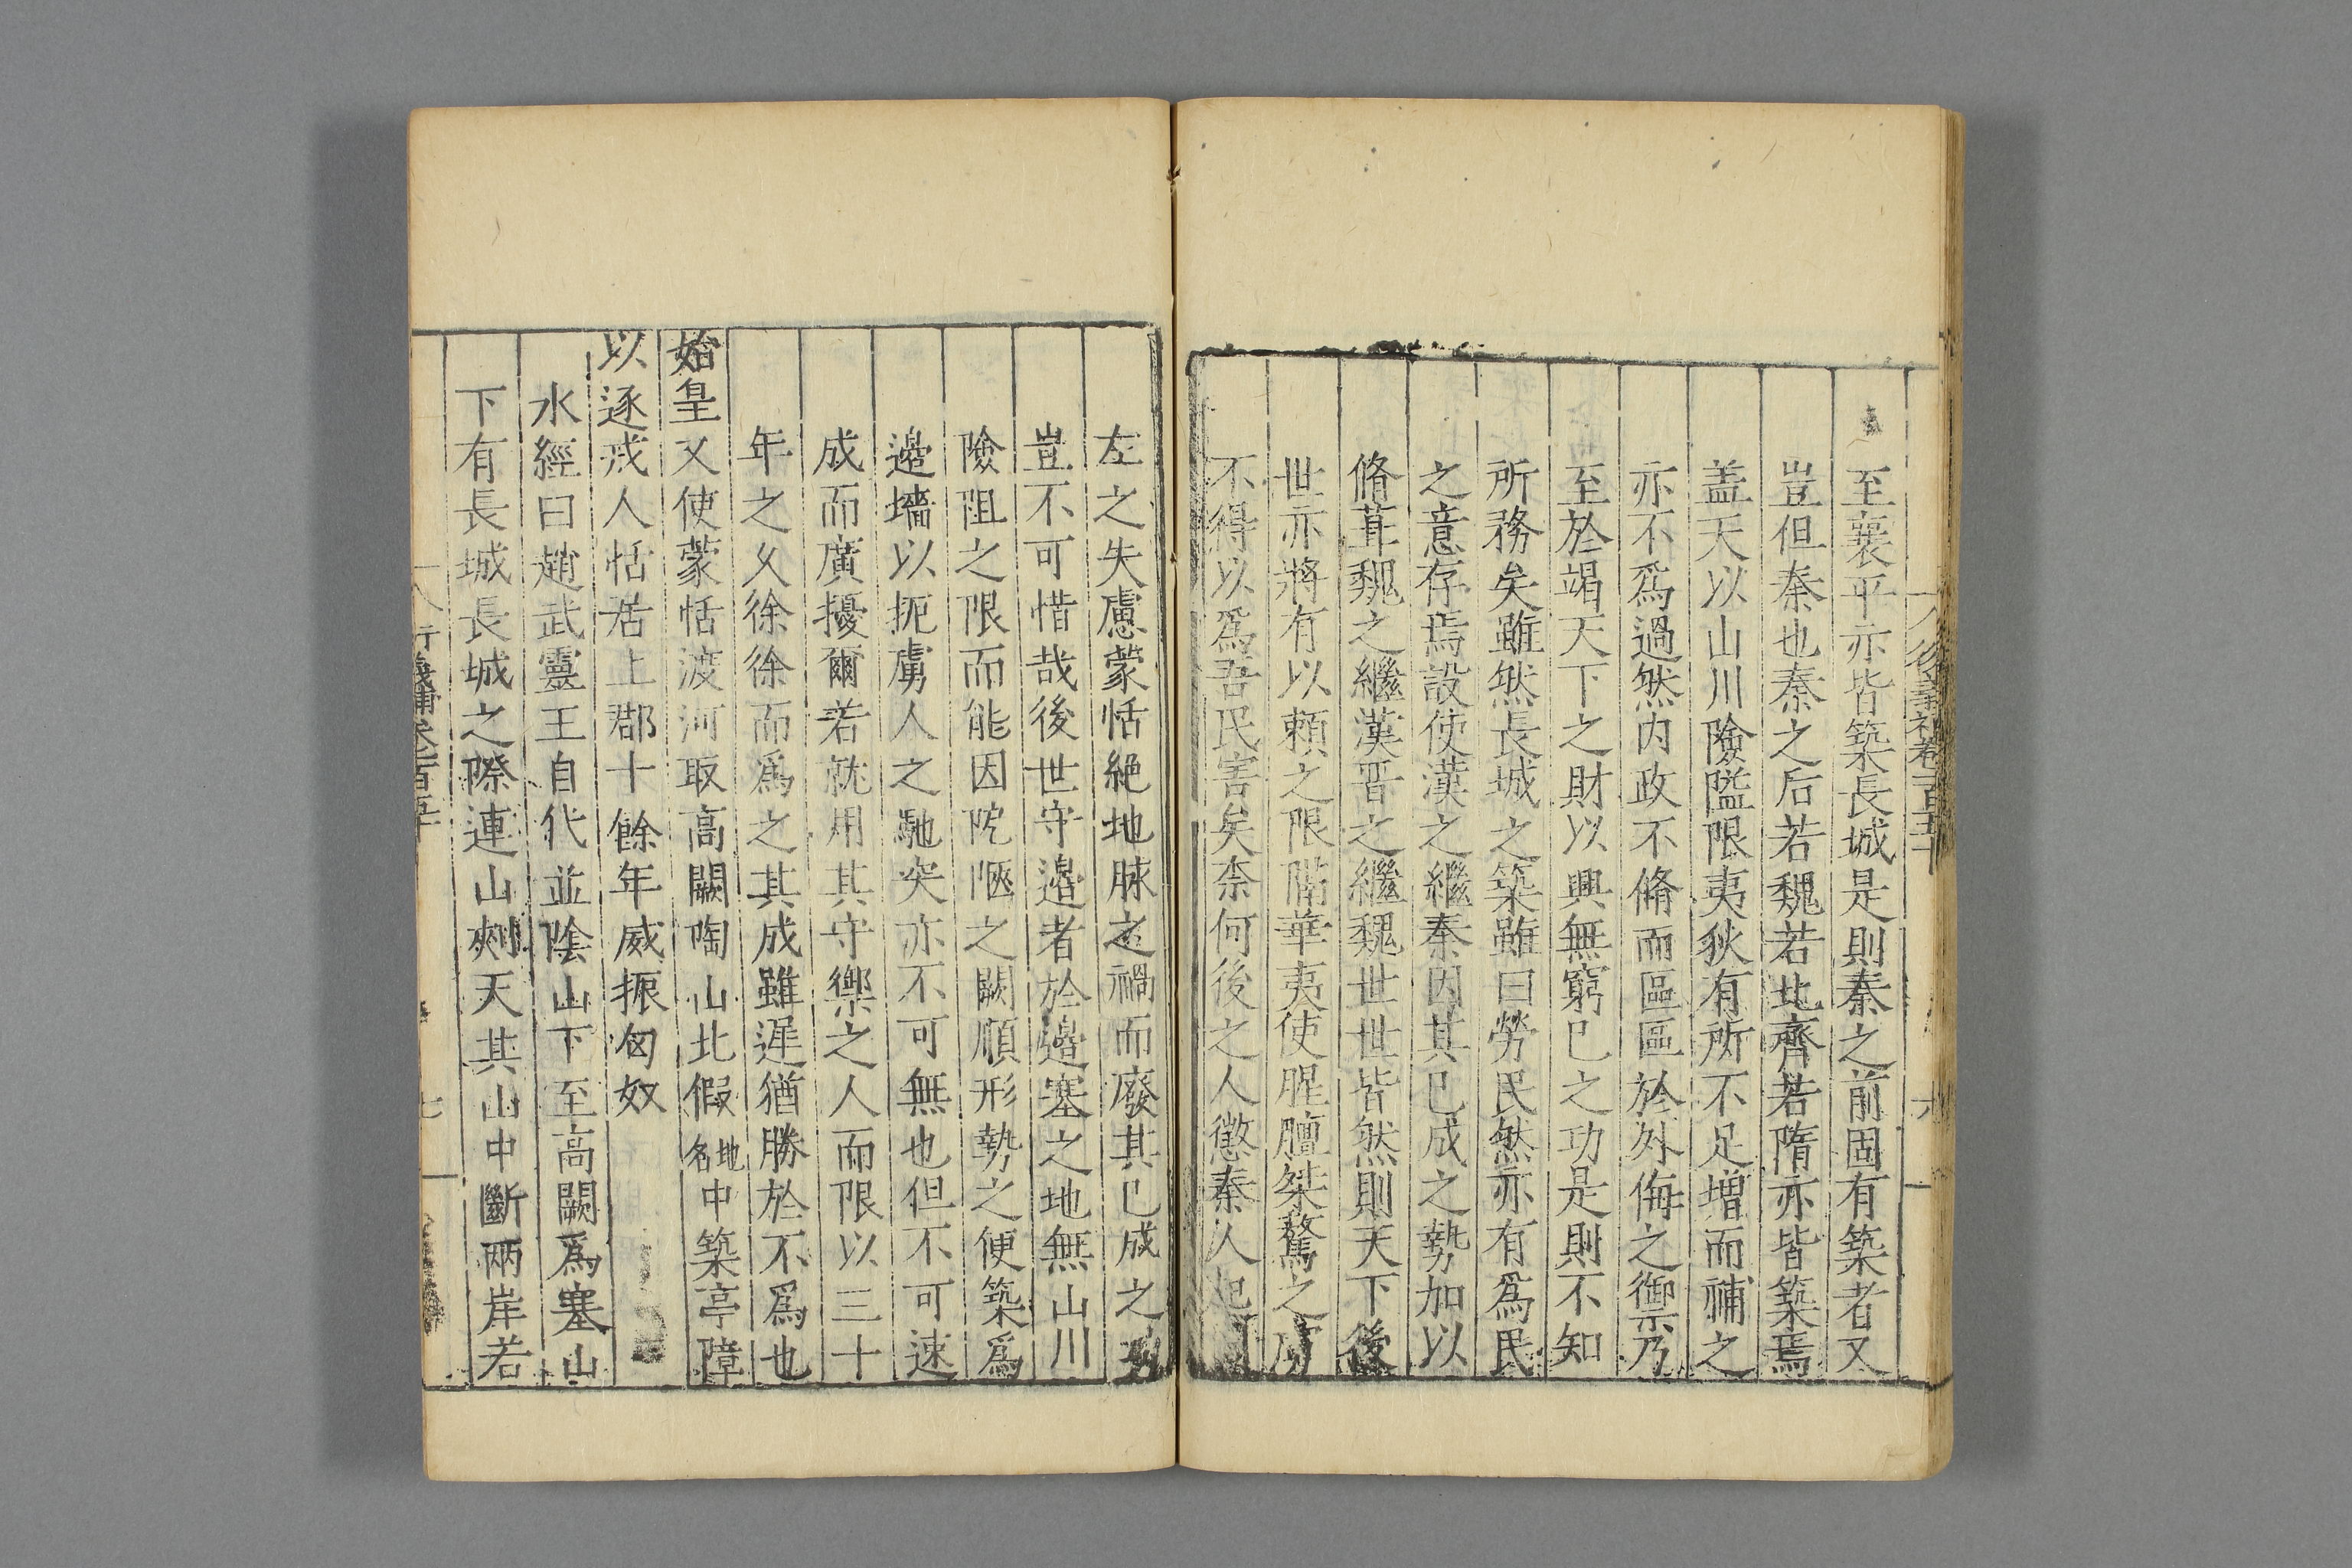 至襄平亦皆築長城是則秦之前固有築者又
豈但秦也秦之后若魏若北齊若隋亦皆築焉
盖天以山川險隘限夷狄有所不足增而補之
亦不爲過然内政不脩而區區於外侮之禦乃
至於竭天下之財以興無窮已之功是則不知
所務矣雖然長城之築雖曰勞民然亦有爲民
之意存焉設使漢之繼秦因其已成之勢加以
脩葺魏之繼漢晋之繼魏世世皆然則天下後
世亦將有以頼之限隔華夷使腥膻桀驁之虜
不得以爲吾民害矣柰何後之人懲秦人起
左之失慮蒙恬絶地脉之禍而廢其已成之功
豈不可惜哉後世守邊者於邊塞之地無山川
險阻之限而能因阨陿之闕順形勢之便築爲
邊墻以扼虜人之馳突亦不可無也但不可速
成而廣擾爾若就用其守禦之人而限以三十
年之乆徐徐而爲之其成雖遲猶勝於不爲也
始皇又使蒙恬渡河取高闕陶山北假地名中築亭障
以逐戎人恬居上郡十餘年威振匈奴
水經曰趙武靈王自代並隂山下至高闕爲塞山
下有長城長城之際連山刺天其山中斷兩岸若